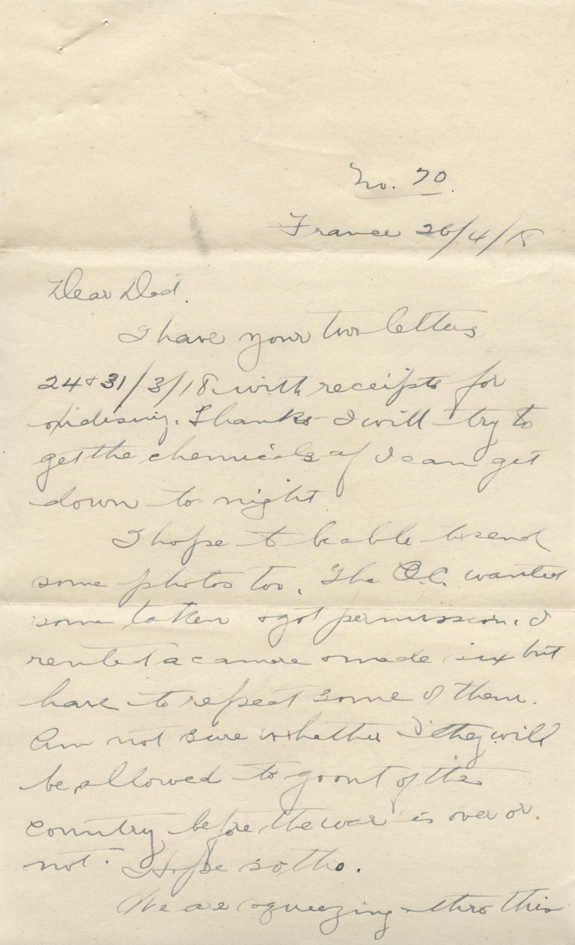 No. 70.
France 26/4/18
Dear Dad.
I have your two letters
24 & 31/3/18 with receipts for
oxidising. Thanks I will try to
get the chemicals if I can get
down to night.
I hope to be able to send
some photos too. The O.C. wanted
some taken & got permission. I
rented a camera & made six but
have to repeat some of them.
Am not sure whether they will
be allowed to go out of the
country before the war is over or
not. Hope so tho.
We are squeezing thro this